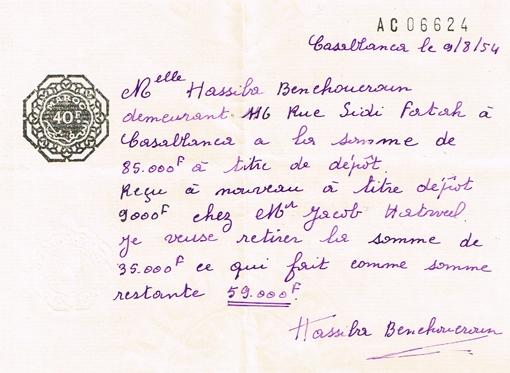 AC06624
Casablanca le 9/8/54
Melle Hassiba Benchoucroun
demeurant 116 Rue Sidi Fatah à
Casablanca a la somme de
85.000F à titre de dépôt.
Reçu à nouveau à titre dépôt
9000F chez Mr Jacob
Je veuse retirer la somme de
35.000F ce qui fait comme somme
restante 59.000F.
Hassiba Benchoucroun
MAROC
40F